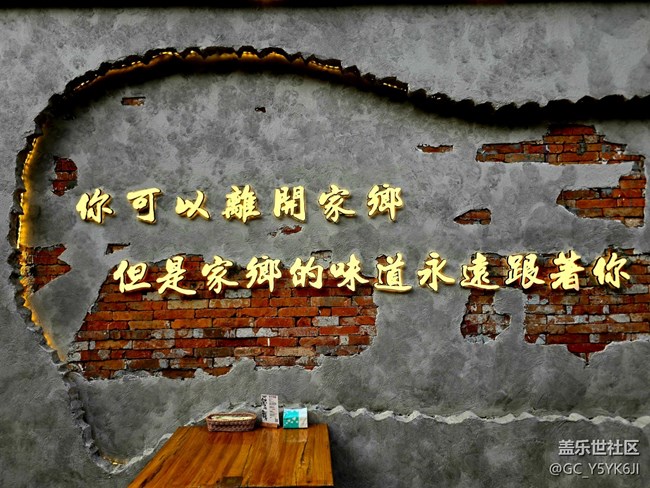 你可以離開家鄉
但是家鄉的味道永遠跟著你
盖乐世社区
@GC_Y5YK6JI